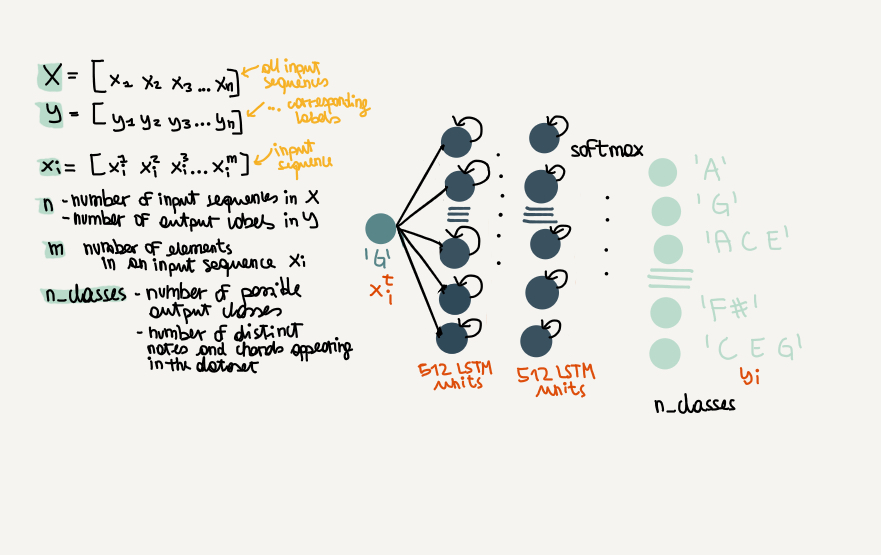 X = [ x₁ x₂ x₃ ... xₙ]
all input
sequences
y = [ y₁ y₂ y₃ ... yₙ]
... corresponding
labels
xᵢ = [ xᵢ¹ xᵢ² xᵢ³ ... xᵢᵐ ]
input
sequence
n - number of input sequences in X
- number of output labels in y
m number of elements
in an input sequence xᵢ
n_classes - number of possible
output classes
- number of distinct
notes and chords appearing
in the dataset
'G'
xᵢᵗ
512 LSTM
units
512 LSTM
units
softmax
'A'
'G'
'A C E'
'F#'
'C E G'
yᵢ
n_classes